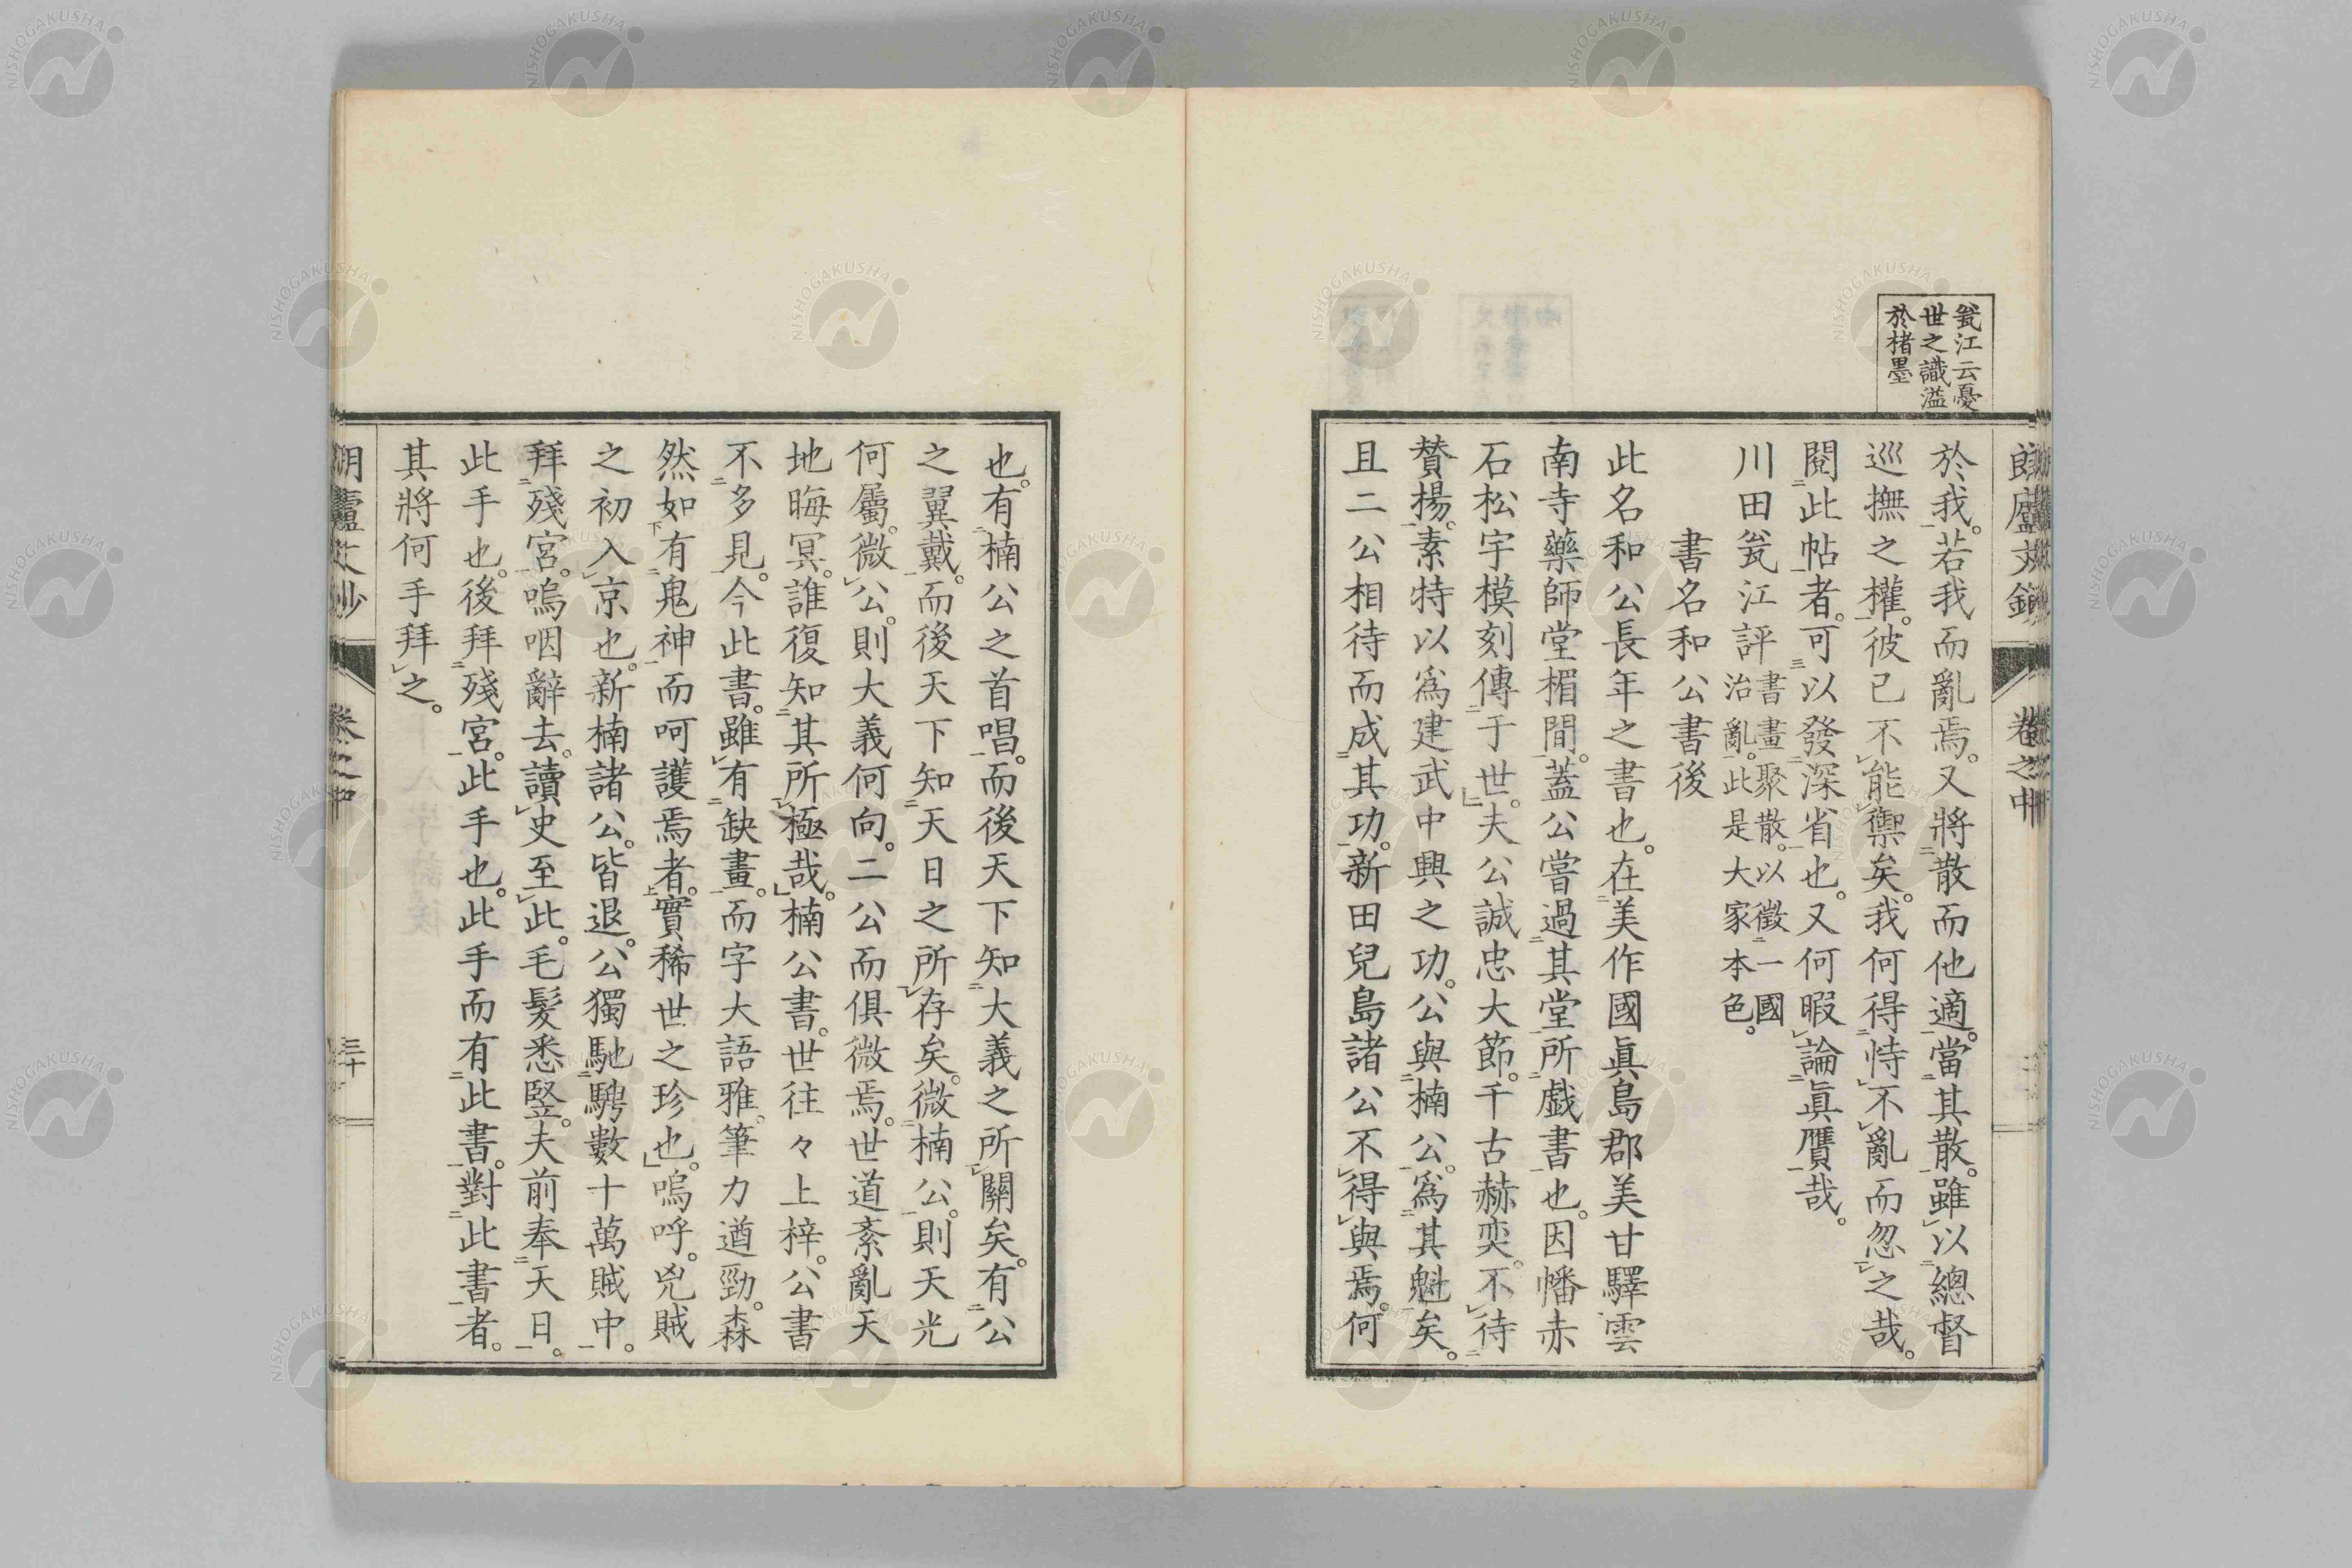 瓮江云憂
世之識溢
於楮墨
於我。若我而亂焉。又將散而他適。當其散。雖以總督
巡撫之權。彼已不能禦矣。我何得恃不亂而忽之哉。
閱此帖者。可以發深省也。又何暇論眞贋哉。
川田瓮江評 書畫聚散。以徵一國
治亂。此是大家本色。
書名和公書後
此名和公長年之書也。在美作國眞島郡美甘驛雲
南寺藥師堂楣間。蓋公嘗過其堂所戲書也。因幡赤
石松宇模刻傳于世。夫公誠忠大節。千古赫奕。不待
賛揚。素特以爲建武中興之功。公與楠公。爲其魁矣。
且二公相待而成其功。新田兒島諸公不得與焉。何
也。有楠公之首唱。而後天下知大義之所關矣。有公
之翼戴。而後天下知天日之所存矣。微楠公。則天光
何屬。微公。則大義何向。二公而俱微焉。世道紊亂天
地晦冥。誰復知其所極哉。楠公書。世往々上梓。公書
不多見。今此書。雖有缺畫。而字大語雅。筆力遒勁。森
然如有鬼神而呵護焉者。實稀世之珍也。嗚呼。兇賊
之初入京也。新楠諸公。皆退。公獨馳騁數十萬賊中。
拜殘宮。嗚咽辭去。讀史至此。毛髮悉竪。夫前奉天日。
此手也。後拜殘宮。此手也。此手而有此書。對此書者。
其將何手拜之。
卷之中
三十